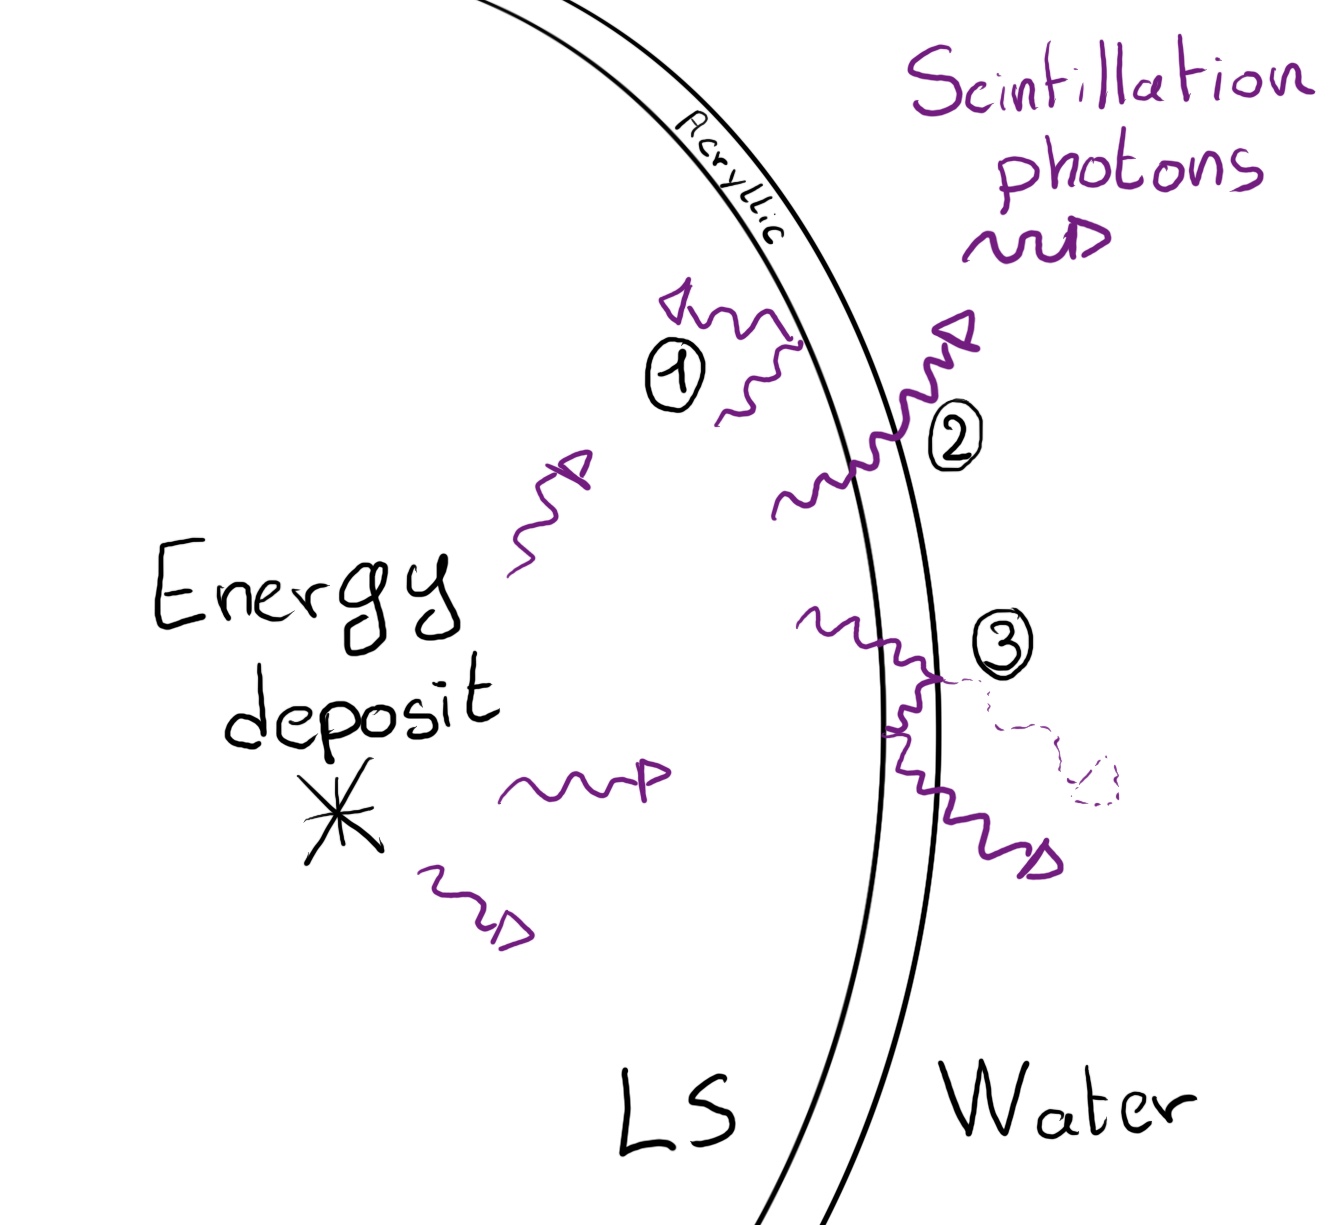 Scintillation
photons
Acryllic
1
2
Energy
deposit
3
LS
Water